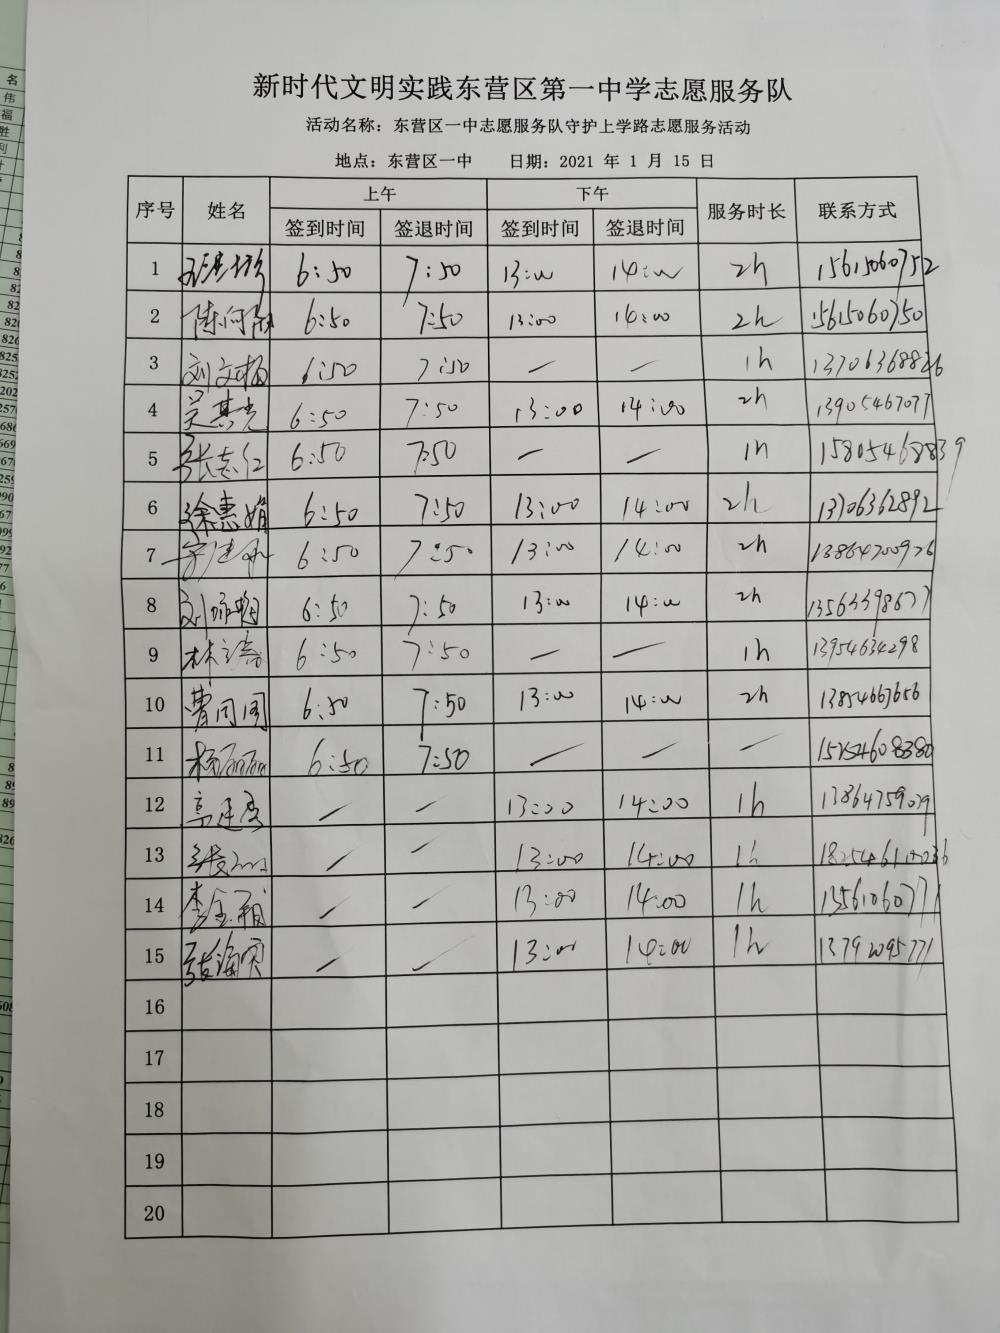 新时代文明实践东营区第一中学志愿服务队
活动名称：东营区一中志愿服务队守护上学路志愿服务活动
地点：东营区一中 日期：2021 年 1 月 15 日
序号 姓名 上午 下午 服务时长 联系方式
签到时间 签退时间 签到时间 签退时间
1 6:50 7:50 13:00 14:00 2h 15615060752
2 6:50 7:50 13:00 14:00 2h 15615060750
3 刘文杨 6:50 7:50 — — 1h 13706368826
4 吴其光 6:50 7:50 13:00 14:00 2h 13905467077
5 张志仁 6:50 7:50 — — 1h 15805468839
6 徐惠娟 6:50 7:50 13:00 14:00 2h 13706362892
7 6:50 7:50 13:00 14:00 2h 13864700926
8 6:50 7:50 13:00 14:00 2h 13563398677
9 6:50 7:50 — — 1h 13954634298
10 曹园园 6:50 7:50 13:00 14:00 2h 13854663656
11 杨丽丽 6:50 7:50 — — — 15254608380
12 — — 13:00 14:00 1h 13864759079
13 — — 13:00 14:00 1h
14 — — 13:00 14:00 1h 13561060771
15 张海霞 — — 13:00 14:00 1h 13792095771
16
17
18
19
20